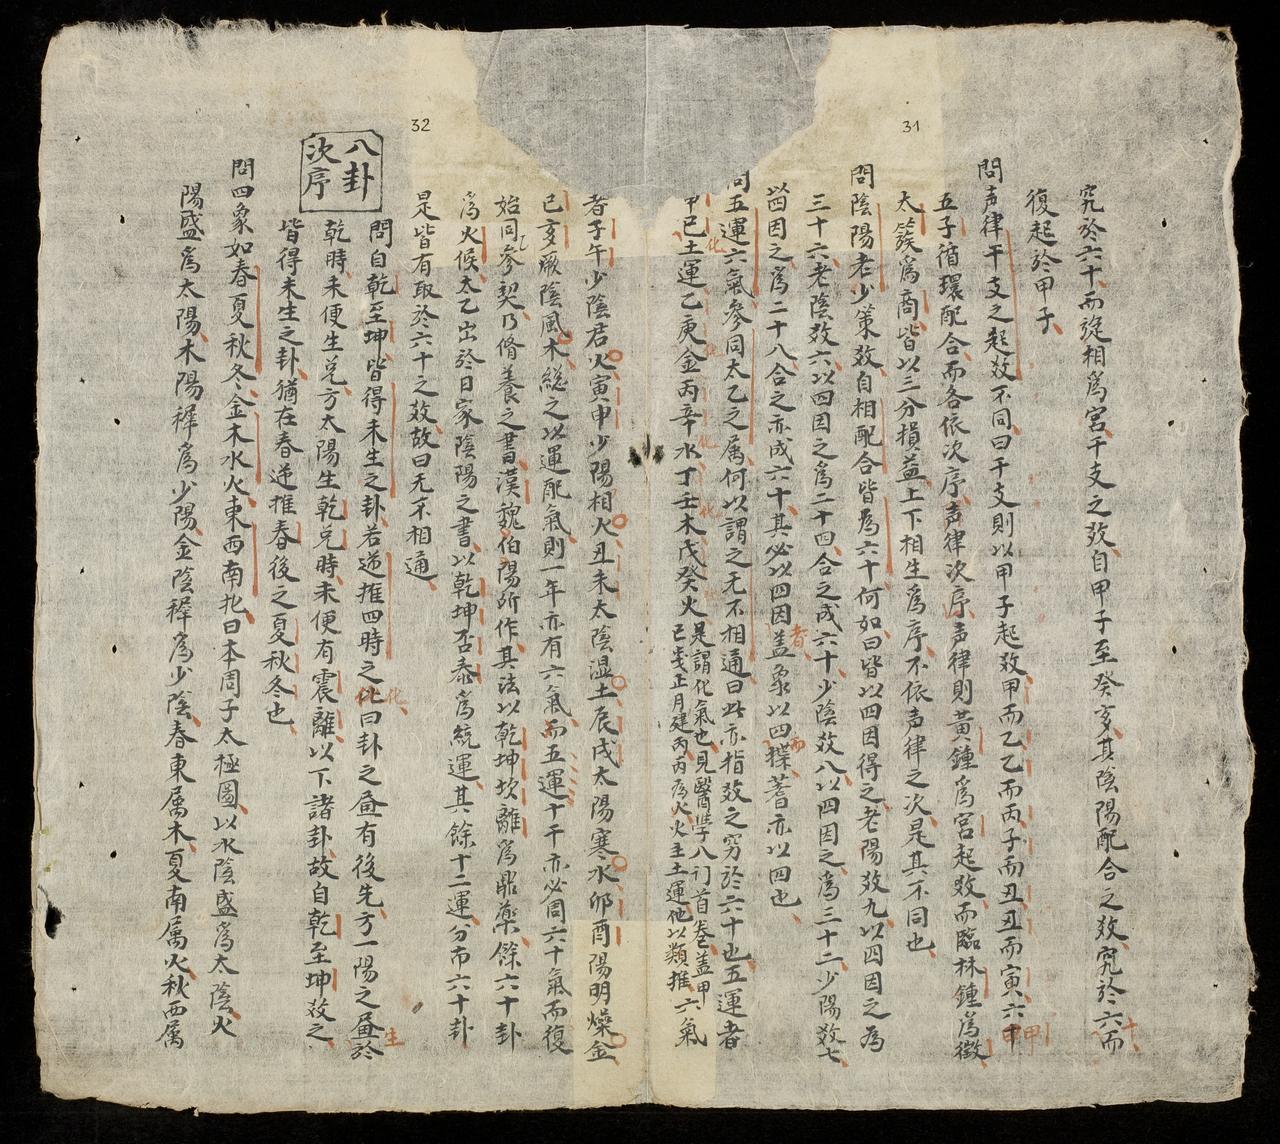 31
究於六十而旋相爲宮干支之数自甲子至癸亥其陰陽配合之数究於六十而
復起於甲子
問声律干支之起数不同曰干支則以甲子起数甲而乙乙而丙子而丑丑而寅六甲
五子循環配合而各依次序声律次序声律則黃鍾爲宮起数而臨林鍾爲徵
太簇爲商皆以三分損益上下相生爲序不依声律之次是其不同也
問陰陽老少策数自相配合皆爲六十何如曰皆以四因得之老陽数九以四因之爲
三十六老陰数六以四因之爲二十四合之成六十少陰数八以四因之爲三十二少陽数七
以四因之爲二十八合之亦成六十其必以四因者盖象以四而揲蓍亦以四也
問五運六氣參同太乙之属何以謂之无不相通曰此亦指数之穷於六十也五運者
甲己化土運乙庚化金丙辛化水丁壬化木戊癸火是謂化氣也見醫學入门首卷盖甲
己歲正月建丙丙為火火主土運他以類推六氣
者子午少陰君火寅申少陽相火丑未太陰湿土辰戌太陽寒水卯酉陽明燥金
巳亥厥陰風木總之以運配氣則一年亦有六氣而五運十干亦必周六十氣而復
始同參契乃脩養之書漢魏伯陽所作其法以乾坤坎離爲鼎藥餘六十卦
爲火候太乙出於日家陰陽之書以乾坤否泰爲統運其餘十二運分布六十卦
是皆有取於六十之数故曰无不相通
32
八卦
次序
問自乾至坤皆得未生之卦若逆推四時之比化曰卦之畫有後先方一陽之畫於生
乾時未便生兌方太陽生乾兌時未便有震離以下諸卦故自乾至坤数之
皆得未生之卦猶在春逆推春後之夏秋冬也
問四象如春夏秋冬金木水火東西南北曰本周子太極圖以水陰盛爲太陰火
陽盛爲太陽木陽穉爲少陽金陰穉爲少陰春東属木夏南属火秋西属